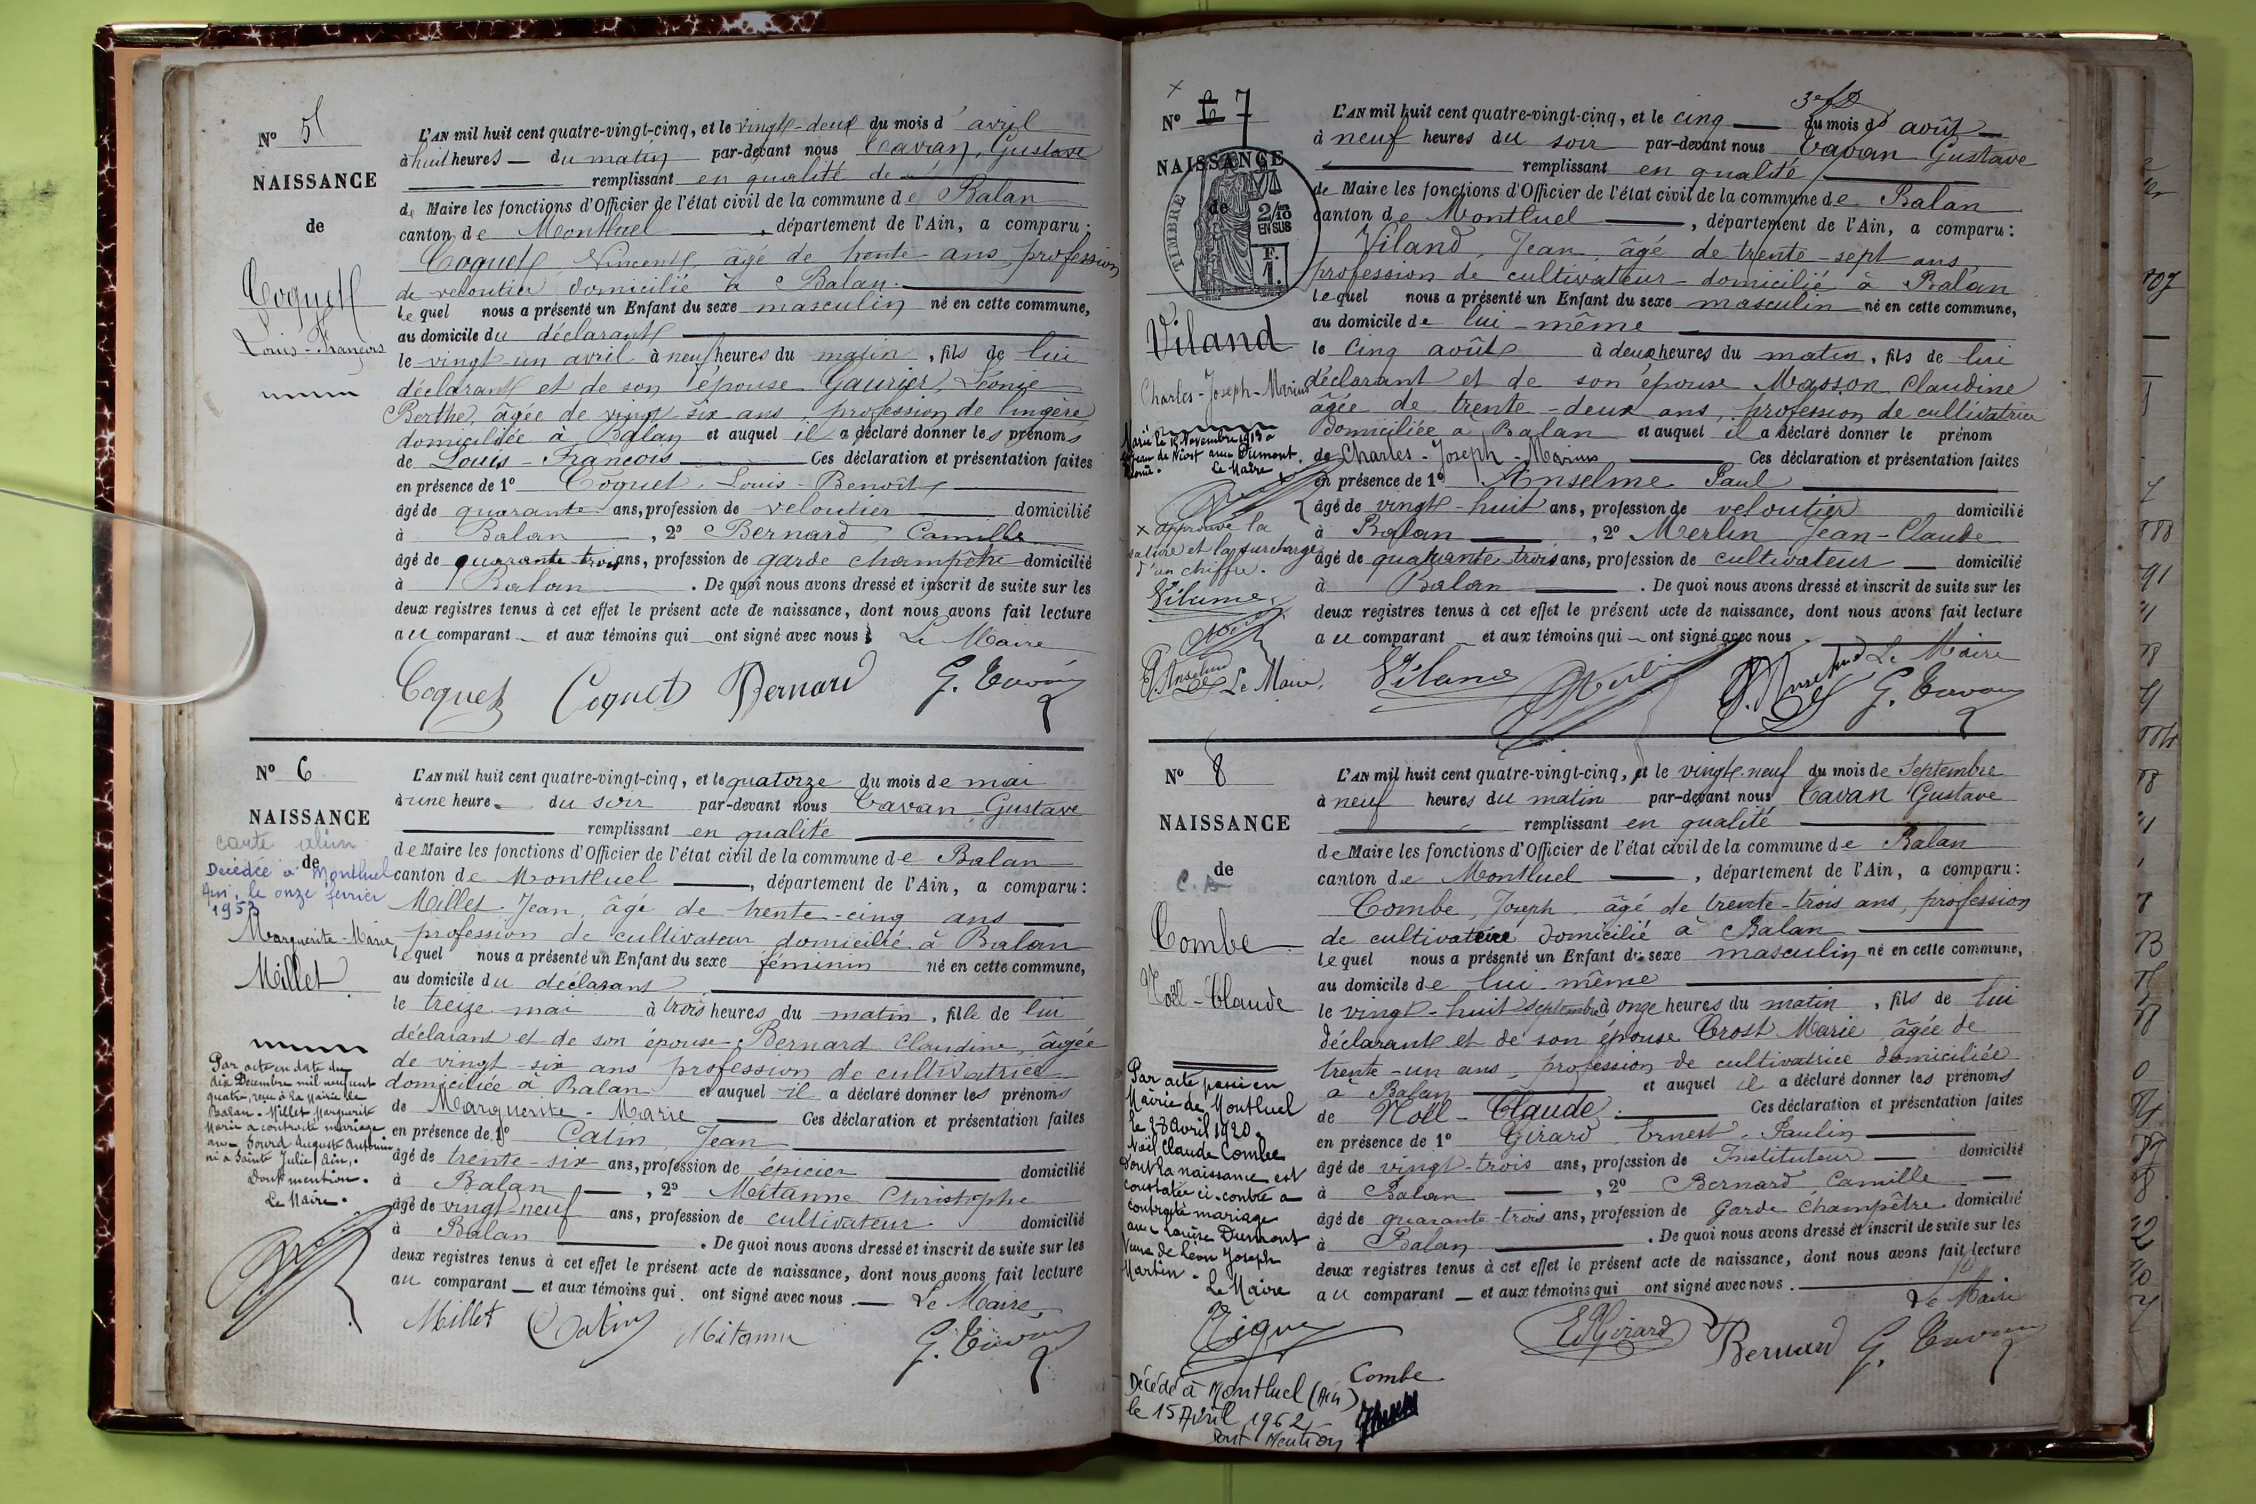 Nº 5
NAISSANCE
de
Coquet
Louis-François
L'AN mil huit cent quatre-vingt-cinq, et le vingt-deux du mois d'avril
à huit heures du matin par-devant nous Tavan, Gustave
remplissant en qualité de
de Maire les fonctions d'Officier de l'état civil de la commune de Balan
canton de Montluel, département de l'Ain, a comparu :
Coquet Vincent âgé de trente ans, profession
de veloutier domicilié à Balan.
lequel nous a présenté un Enfant du sexe masculin né en cette commune,
au domicile du déclarant
le vingt un avril à neuf heures du matin, fils de lui
déclarant et de son épouse Gaurier, Léonie
Berthe, âgée de vingt-six ans, profession de lingère
domiciliée à Balan et auquel il a déclaré donner les prénoms
de Louis-François Ces déclaration et présentation faites
en présence de 1º Coquet, Louis-Benoît
âgé de quarante ans, profession de veloutier domicilié
à Balan, 2º Bernard Camille
âgé de quarante trois ans, profession de garde champêtre domicilié
à Balan. De quoi nous avons dressé et inscrit de suite sur les
deux registres tenus à cet effet le présent acte de naissance, dont nous avons fait lecture
au comparant et aux témoins qui ont signé avec nous. Le Maire
Coquet Coquet Bernard G. Tavan
Nº 6
NAISSANCE
de
Décédée à Montluel
Ain, le onze février
Marguerite-Marie
Millet
Par acte en date du
dix Décembre mil neuf cent
quatre, reçu à la Mairie de
Balan. Millet Marguerite
Marie a contracté mariage
avec Sourd Auguste Antonin
né à Sainte Julie, Ain.
Dont mention.
Le Maire.
L'AN mil huit cent quatre-vingt-cinq, et le quatorze du mois de mai
à une heure du soir par-devant nous Tavan Gustave
remplissant en qualité
de Maire les fonctions d'Officier de l'état civil de la commune de Balan
canton de Montluel, département de l'Ain, a comparu :
Millet Jean, âgé de trente-cinq ans
profession de cultivateur domicilié à Balan
lequel nous a présenté un Enfant du sexe féminin né en cette commune,
au domicile du déclarant
le treize mai à trois heures du matin, fille de lui
déclarant et de son épouse Bernard Claudine, âgée
de vingt-six ans profession de cultivatrice
domiciliée à Balan et auquel il a déclaré donner les prénoms
de Marguerite-Marie Ces déclaration et présentation faites
en présence de 1º Catin Jean
âgé de trente-six ans, profession de épicier domicilié
à Balan, 2º Mitanne Christophe
âgé de vingt neuf ans, profession de cultivateur domicilié
à Balan. De quoi nous avons dressé et inscrit de suite sur les
deux registres tenus à cet effet le présent acte de naissance, dont nous avons fait lecture
au comparant et aux témoins qui ont signé avec nous. Le Maire
Millet Catin Mitanne G. Tavan
Nº 7
NAISSANCE
de
TIMBRE
2/10 EN SUS
Viland
Charles-Joseph-Marius
Le Maire
x approuvé la
rature et la surcharge
d'un chiffre.
Le Maire,
L'AN mil huit cent quatre-vingt-cinq, et le cinq du mois d'août
à neuf heures du soir par-devant nous Tavan Gustave
remplissant en qualité
de Maire les fonctions d'Officier de l'état civil de la commune de Balan
canton de Montluel, département de l'Ain, a comparu :
Viland, Jean, âgé de trente-sept ans
profession de cultivateur domicilié à Balan
lequel nous a présenté un Enfant du sexe masculin né en cette commune,
au domicile de lui-même
le cinq août à deux heures du matin, fils de lui
déclarant et de son épouse Masson Claudine
âgée de trente-deux ans, profession de cultivatrice
domiciliée à Balan et auquel il a déclaré donner le prénom
de Charles-Joseph-Marius Ces déclaration et présentation faites
en présence de 1º Anselme Paul
âgé de vingt-huit ans, profession de veloutier domicilié
à Balan, 2º Merlin Jean-Claude
âgé de quarante trois ans, profession de cultivateur domicilié
à Balan. De quoi nous avons dressé et inscrit de suite sur les
deux registres tenus à cet effet le présent acte de naissance, dont nous avons fait lecture
au comparant et aux témoins qui ont signé avec nous.
Le Maire
Viland G. Tavan
Nº 8
NAISSANCE
de
Combe
Noël-Claude
Par acte passé en
Mairie de Montluel
le 28 Avril 1920,
Noël Claude Combe
dont la naissance est
constatée ci-contre a
contracté mariage
avec Louise Dumont
Veuve de Léon Joseph
Martin.
Le Maire
Décédé à Montluel (Ain)
le 15 Avril 1962
Dont Mention
L'AN mil huit cent quatre-vingt-cinq, et le vingt-neuf du mois de Septembre
à neuf heures du matin par-devant nous Tavan Gustave
remplissant en qualité
de Maire les fonctions d'Officier de l'état civil de la commune de Balan
canton de Montluel, département de l'Ain, a comparu :
Combe, Joseph âgé de trente-trois ans, profession
de cultivateur domicilié à Balan
lequel nous a présenté un Enfant du sexe masculin né en cette commune,
au domicile de lui-même
le vingt-huit septembre à onze heures du matin, fils de lui
déclarant et de son épouse Crost Marie âgée de
trente-un ans, profession de cultivatrice domiciliée
à Balan et auquel il a déclaré donner les prénoms
de Noël-Claude. Ces déclaration et présentation faites
en présence de 1º Girard Ernest-Paulin
âgé de vingt-trois ans, profession de Instituteur domicilié
à Balan, 2º Bernard Camille
âgé de quarante-trois ans, profession de Garde Champêtre domicilié
à Balan. De quoi nous avons dressé et inscrit de suite sur les
deux registres tenus à cet effet le présent acte de naissance, dont nous avons fait lecture
au comparant et aux témoins qui ont signé avec nous.
Le Maire
Girard Bernard G. Tavan
Combe